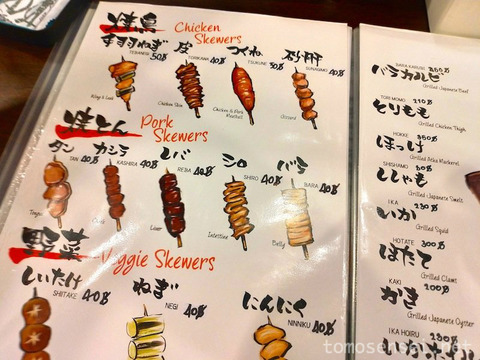 焼鳥 Chicken Skewers
手羽ねぎ 皮 つくね 砂肝
TEBANEGI 50฿ TORIKAWA 40฿ TSUKUNE 50฿ SUNAGIMO 40฿
Wings & Leek Chicken Skin Chicken & Pork Meatball Gizzard
焼とん Pork Skewers
タン カシラ レバ シロ バラ
TAN 40฿ KASHIRA 40฿ REBA 40฿ SHIRO 40฿ BARA 40฿
Tongue Cheek Liver Intestine Belly
野菜 Veggie Skewers
しいたけ ねぎ にんにく
SHIITAKE 40฿ NEGI 40฿ NINNIKU 40฿
BARA KARUBI
バラカルビ
Grilled Japanese Beef
TORI MOMO 210฿
とりもも
Grilled Chicken Thigh
HOKKE 350฿
ほっけ
Grilled Atka Mackerel
SHISHAMO
ししゃも
Grilled Japanese Smelt
IKA
いか
Grilled Squid
HOTATE 300฿
ほたて
Grilled Clams
KAKI 200฿
かき
Grilled Japanese Oyster
IKA HOIRU
tomosensai.net